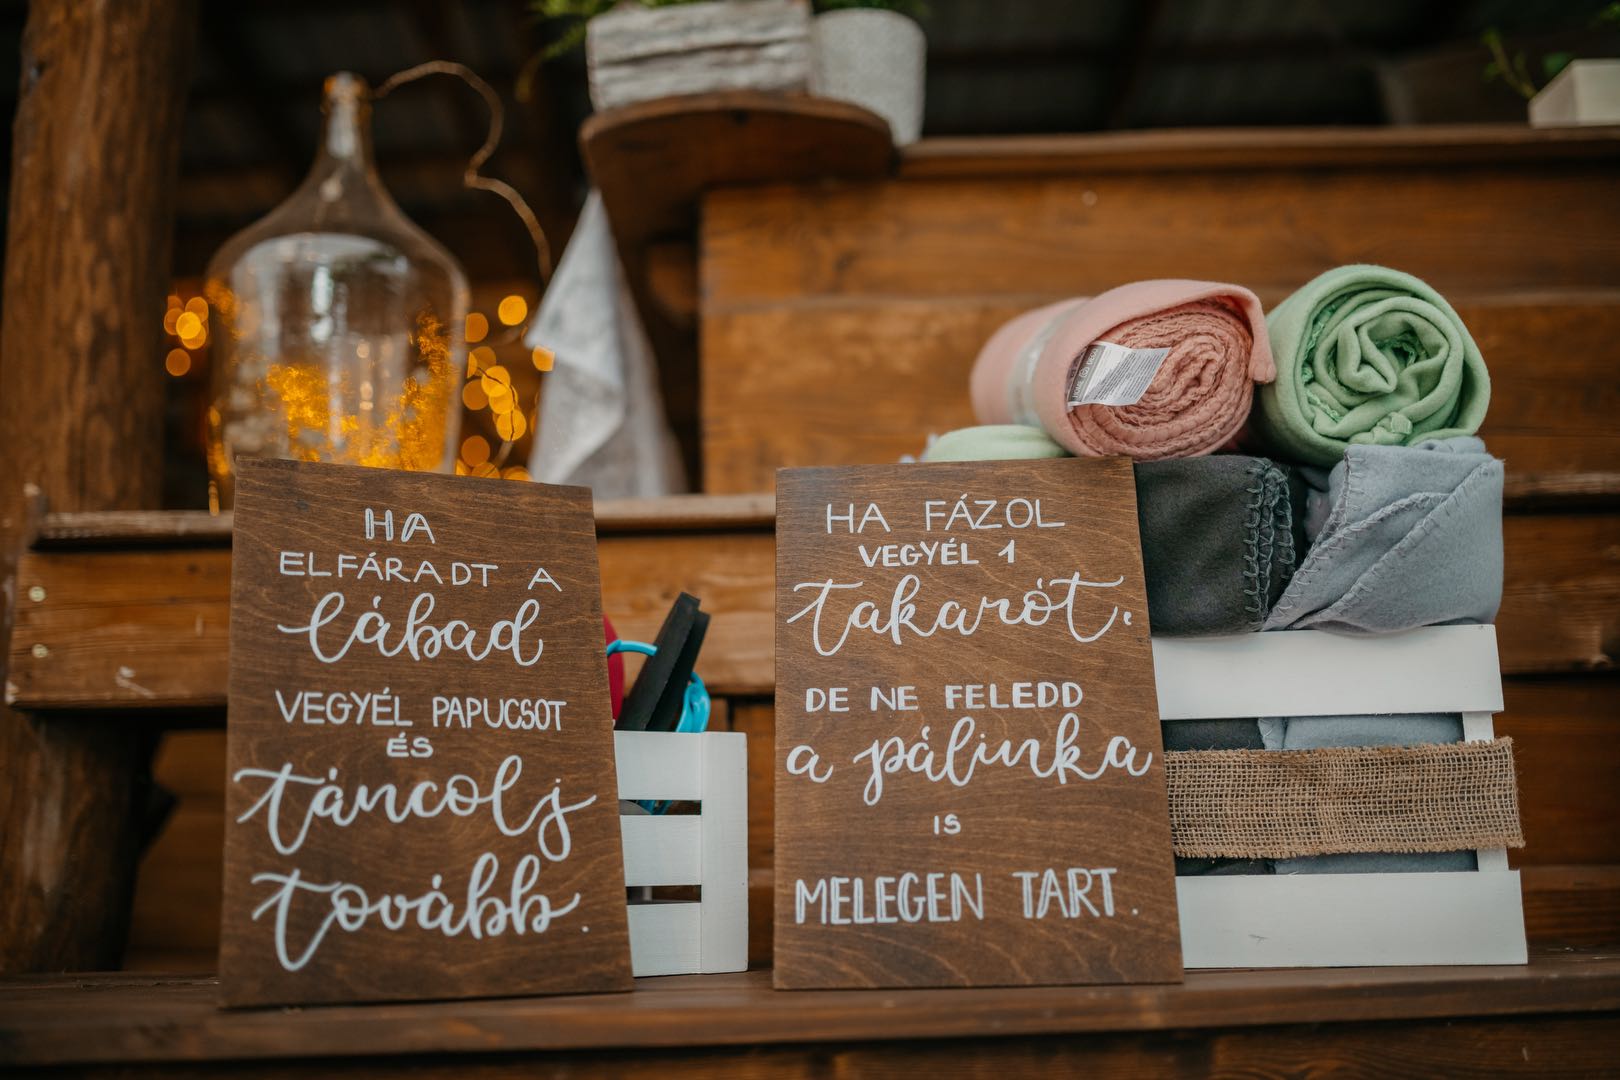 HA
ELFÁRADT A
lábad
VEGYÉL PAPUCSOT
ÉS
táncolj
tovább.
HA FÁZOL
VEGYÉL 1
takarót,
DE NE FELEDD
a pálinka
IS
MELEGEN TART.